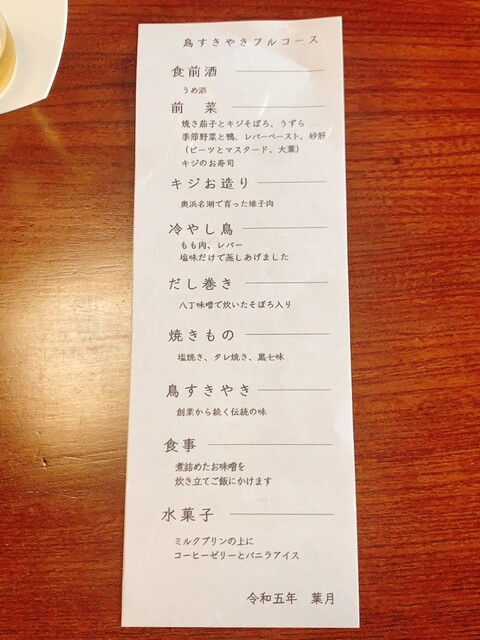 鳥すきやきフルコース
食前酒
うめ酒
前菜
焼き茄子とキジそぼろ、うずら
季節野菜と鴨、レバーペースト、砂肝
(ビーツとマスタード、大葉)
キジのお寿司
キジお造り
奥浜名湖で育った雉子肉
冷やし鳥
もも肉、レバー
塩味だけで蒸しあげました
だし巻き
八丁味噌で炊いたそぼろ入り
焼きもの
塩焼き、タレ焼き、黒七味
鳥すきやき
創業から続く伝統の味
食事
煮詰めたお味噌を
炊き立てご飯にかけます
水菓子
ミルクプリンの上に
コーヒーゼリーとバニラアイス
令和五年 葉月